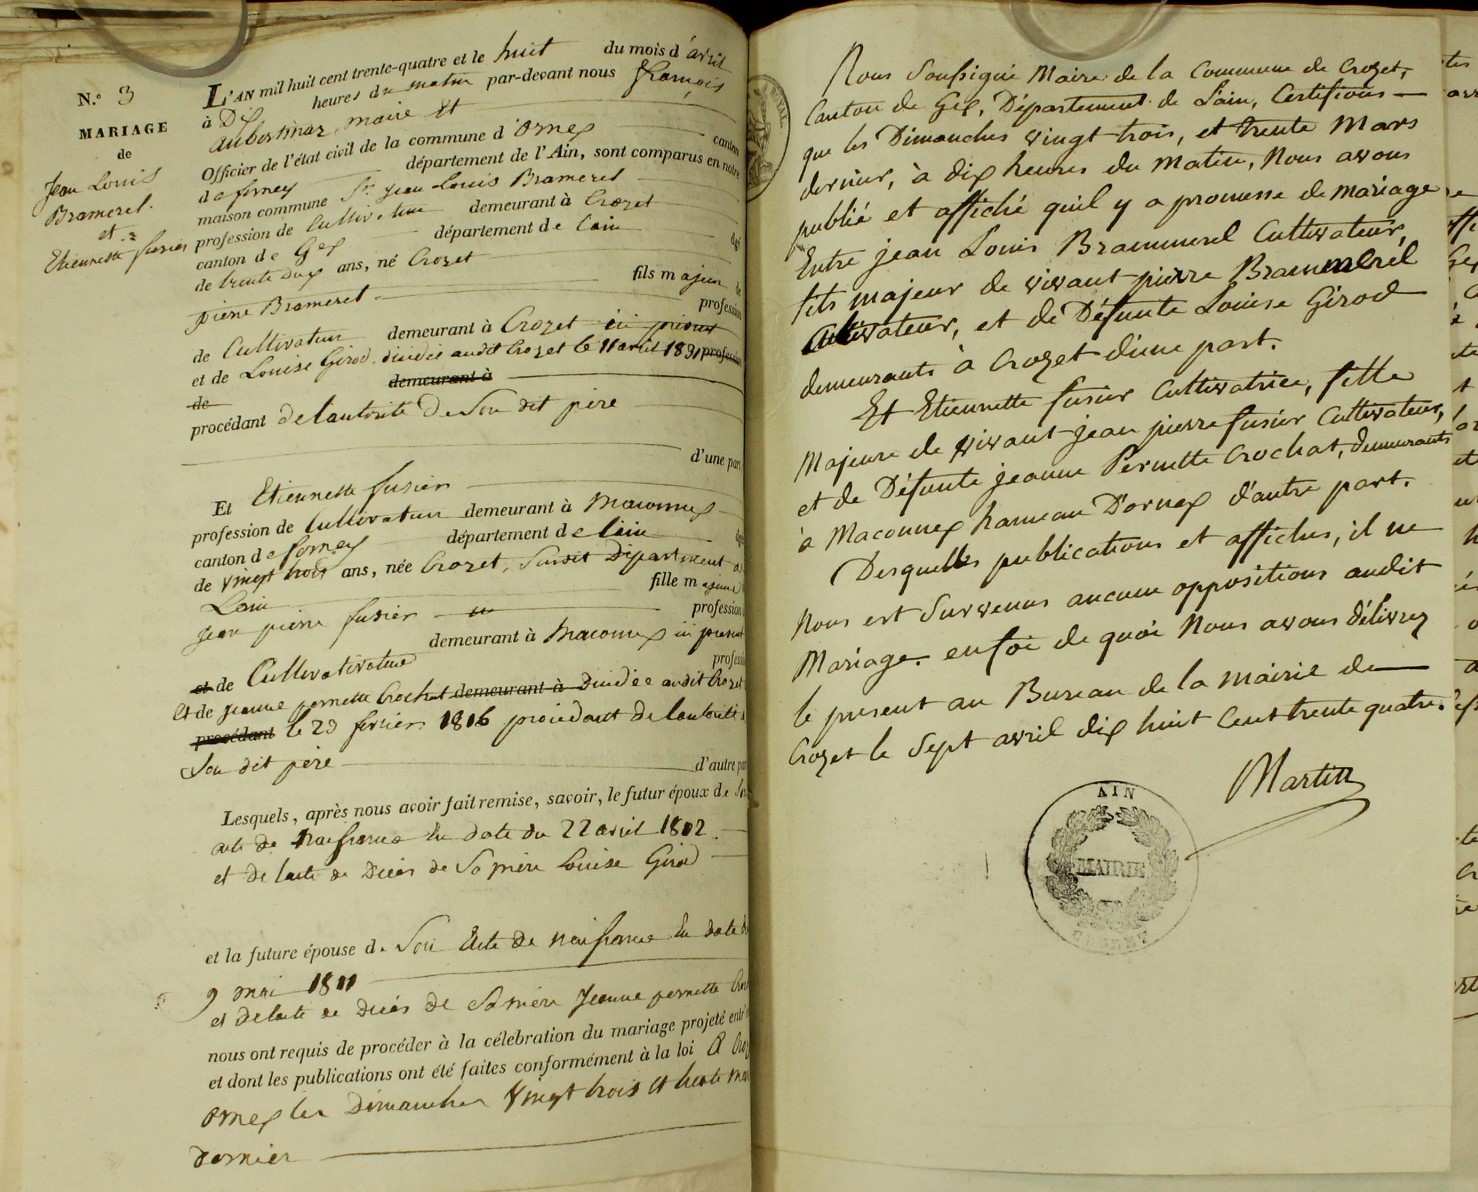 N.° 3
MARIAGE
de
Jean Louis
Bramerel.
et
Etiennette fusier
L'AN mil huit cent trente-quatre et le huit du mois d'avril
à Dix heures du matin par-devant nous François
aubertinaz maire et
Officier de l'état civil de la commune d'Ornex canton
de ferney département de l'Ain, sont comparus en notre
maison commune Sr. Jean Louis Bramerel
profession de Cultivateur demeurant à Crozet
canton de Gex département de Lain âgé
de trente deux ans, né Crozet fils majeur de
pierre Bramerel profession
de Cultivateur demeurant à Crozet ici présent
et de Louise Girod, décédée audit Crozet le 11 avril 1831 profession
de demeurant à
procédant de lautorité de Son dit père
d'une part
Et Etiennette fusier
profession de Cultivateur demeurant à Maconnex
canton de ferney département de Lain âgée
de vingt trois ans, née Crozet, Susdit Département de
Lain fille majeure
jean pierre fusier profession
et de Cultivativateur demeurant à Maconnex ici présent
Et de jeanne pernette Crochat demeurant à Décédée audit Crozet
procédant le 23 février 1816 procédant de lautorité de
Son dit père d'autre part
Lesquels, après nous avoir fait remise, savoir, le futur époux de Son
acte de Naissance En date du 22 avril 1802.
et de lacte de Décès de Sa mère Louise Girod
et la future épouse de Son Acte de naissance En date du
9 mai 1811
et de lacte de décès de Sa mère Jeanne pernette
nous ont requis de procéder à la célébration du mariage projeté entr'
et dont les publications ont été faites conformément à la loi A
Ornex les Dimanches Vingt trois et trente mars
dernier
ROYAL.
Nous Soussigné Maire de la Commune de Crozet,
Canton de Gex, Département de L'ain, Certifions
que les Dimanches vingt trois, et trente Mars
dernier, à dix heures du Matin, Nous avons
publié et affiché qu'il y a promesse de mariage
Entre jean Louis Brammerel Cultivateur,
fils majeur de vivant pierre Brammerel
Cultivateur, et de Défunte Louise Girod
demeurants à Crozet d'une part.
Et Etiennette fusier Cultivatrice, fille
Majeure de vivant jean pierre fusier Cultivateur,
et de Défunte jeanne Pernette Crochat, demeurants
à Maconnex hameau D'ornex d'autre part.
Desquelles publications et affiches, il ne
Nous est Survenus aucune oppositions audit
Mariage. en foi de quoi Nous avons délivrez
le present au Bureau de la Mairie de
Crozet le Sept avril dix huit Cent trente quatre.
Martin
AIN
MAIRIE